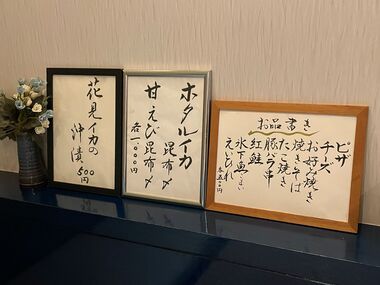 花見イカの
沖漬
500円
ホタルイカ
昆布〆
甘えび昆布〆
各1,000円
お品書き
ピザ
チーズ
お好み焼き
焼きそば
たこ焼き
豚バラ串
紅鮭
氷下魚
えいひれ